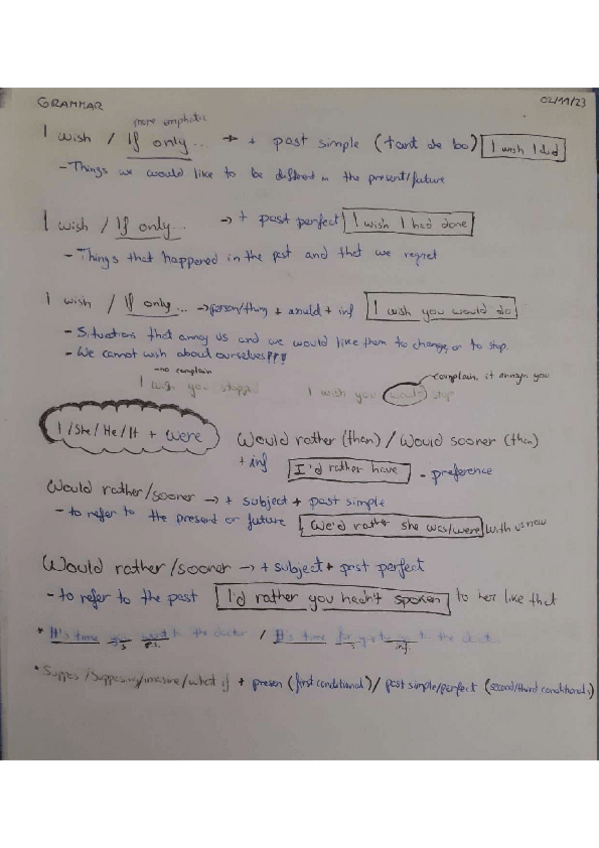 GRAMMAR 02/11/23
more emphatic
I wish / If only... → + past simple (tant de bo) I wish I did
- Things we would like to be different in the present/future
I wish / If only... → + past perfect I wish I had done
- Things that happened in the past and that we regret
I wish / If only... → person/thing + would + inf I wish you would do
- Situations that annoy us and we would like them to change, or to stop.
- We cannot wish about ourselves!!!
→ no complain complain, it annoys you
I wish you stopped I wish you would stop
I/She/He/It + were Would rather (than) / Would sooner (than)
+ inf I'd rather have - preference
Would rather/sooner → + subject + past simple
- to refer to the present or future We'd rather she was/were with us now
Would rather/sooner → + subject + past perfect
- to refer to the past I'd rather you hadn't spoken to her like that
* It's time you went to the doctor / It's time for you to go to the doctor
s p.s. s inf.
* Suppose/Supposing/imagine/what if + presen (first conditional)/ past simple/perfect (second/third conditionals)